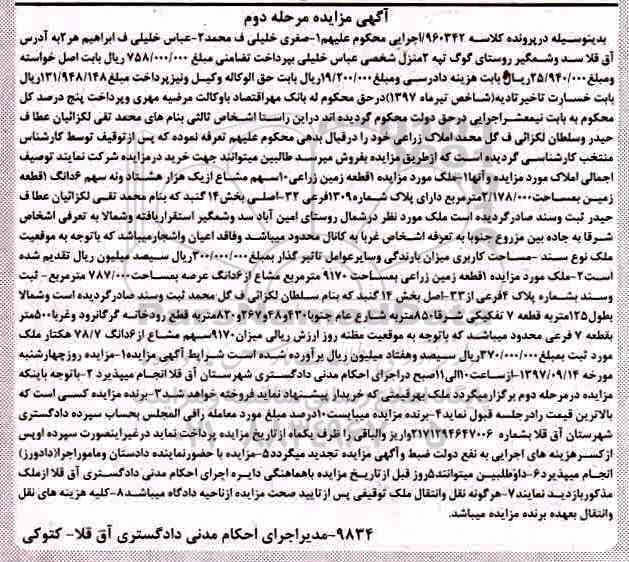 آگهی مزایده مرحله دوم
بدینوسیله در پرونده کلاسه ۹۶۰۳۴۲/اجرایی محکوم علیهم۱-صغری خلیلی ف محمد۲-عباس خلیلی ف ابراهیم هر۲به آدرس
آق قلا سد وشمگیر روستای گوگ تپه ۲منزل شخصی عباس خلیلی بپرداخت تضامنی مبلغ ۷۵۸/۰۰۰/۰۰۰ ریال بابت اصل خواسته
ومبلغ۲۵/۹۴۰/۰۰۰ریال بابت هزینه دادرسی ومبلغ۱۹/۲۰۰/۰۰۰ریال بابت حق الوکاله وکیل ونیزپرداخت مبلغ۱۳۱/۹۴۸/۱۴۸ریال
بابت خسارت تاخیرتادیه(شاخص تیرماه ۱۳۹۷)درحق محکوم له بانک مهراقتصاد باوکالت مرضیه مهری وپرداخت پنج درصد کل
محکوم به بابت نیمعشراجرایی درحق دولت محکوم گردیده اند دراین راستا اشخاص ثالثی بنام های محمد تقی لکزائیان عطا ف
حیدر وسلطان لکزائی ف گل محمد املاک زراعی خود را درقبال بدهی محکوم علیهم تعرفه نموده که پس ازتوقیف توسط کارشناس
منتخب کارشناسی گردیده است که ازطریق مزایده بفروش میرسد طالبین میتوانند جهت خرید درمزایده شرکت نمایند توصیف
اجمالی املاک مورد مزایده وآنها۱-ملک مورد مزایده ۱قطعه زمین زراعی ۱۰سهم مشاع ازیک هزار هشتاد ونه سهم ۶دانگ ۱قطعه
زمین بمساحت۲/۱۷۸/۰۰۰مترمربع دارای پلاک شماره۱۳۰۹فرعی ۳۲-اصلی بخش۱۴ گنبد که بنام محمد تقی لکزائیان عطا ف
حیدر ثبت وسند صادرگردیده است ملک مورد نظر درشمال روستای امین آباد سد وشمگیر استقراریافته وشمالا به تعرفی اشخاص
شرقا به جاده بین مزروع جنوبا به تعرفه اشخاص غربا به کانال محدود میباشد وفاقد اعیان واشجارمیباشد که باتوجه به موقعیت
ملک نوع سند -مساحت کاربری میزان بارندگی وسایرعوامل تاثیر گذار بمبلغ۳۰۰/۰۰۰/۰۰۰ریال سیصد میلیون ریال تقدیم شده
است۲-ملک مورد مزایده ۱قطعه زمین زراعی بمساحت ۹۱۷۰ مترمربع مشاع از۶دانگ عرصه بمساحت۷۸۷/۰۰۰ مترمربع- ثبت
وسند بشماره پلاک ۴فرعی از۳۳-اصل بخش ۱۴ گنبد که بنام سلطان لکزائی ف گل محمد ثبت وسند صادرگردیده است وشمالا
بطول۱۲۵متربه قطعه ۷ تفکیکی شرقا۸۵۰متربه شارع عام جنوبا۴۳۰و۴۸و۲۶۷و۸۳۰متربه قطع رودخانه گرگانرود وغربا۵۰۰متر
بقطعه ۷ فرعی محدود میباشد که باتوجه به موقعیت مظنه روز ارزش ریالی میزان۹۱۷۰سهم مشاع از۶دانگ ۷۸/۷ هکتار ملک
مورد ثبت بمبلغ۳۷۰/۰۰۰/۰۰۰ریال سیصد وهفتاد میلیون ریال برآورده شده است شرایط آگهی مزایده۱-مزایده روزچهارشنبه
مورخه ۱۳۹۷/۰۹/۱۴-ازساعت۱۰الی۱۱صبح دراجرای احکام مدنی دادگستری شهرستان آق قلا انجام میپذیرد ۲-باتوجه باینکه
مزایده درمرحله دوم برگزارمیگردد ملک بهرقیمتی که خریدار پیشنهاد نماید فروخته خواهد شد۳-برنده مزایده کسی است که
بالاترین قیمت رادرجلسه قبول نماید۴-برنده مزایده میبایست۱۰درصد مبلغ مورد معامله رافی المجلس بحساب سپرده دادگستری
شهرستان آق قلا بشماره ۲۱۷۱۲۹۴۶۴۷۰۰۶واریز والباقی را ظرف یکماه ازتاریخ مزایده پرداخت نماید درغیراینصورت سپرده اوپس
ازکسرهزینه های اجرایی به نفع دولت ضبط وآگهی مزایده تجدید میگردد۵-مزایده با حضورنماینده دادستان وماموراجرا(دادورز)
انجام میپذیرد۶-داوطلبین میتوانند۵روز قبل ازتاریخ مزایده باهماهنگی دایره اجرای احکام مدنی دادگستری آق قلا ازملک
مذکوربازدید نمایند۷-هرگونه نقل وانتقال ملک توقیفی پس ازتایید صحت مزایده ازناحیه دادگاه میباشد۸-کلیه هزینه های نقل
وانتقال بعهده برنده مزایده میباشد.
۹۸۳۴-مدیراجرای احکام مدنی دادگستری آق قلا- کتوکی